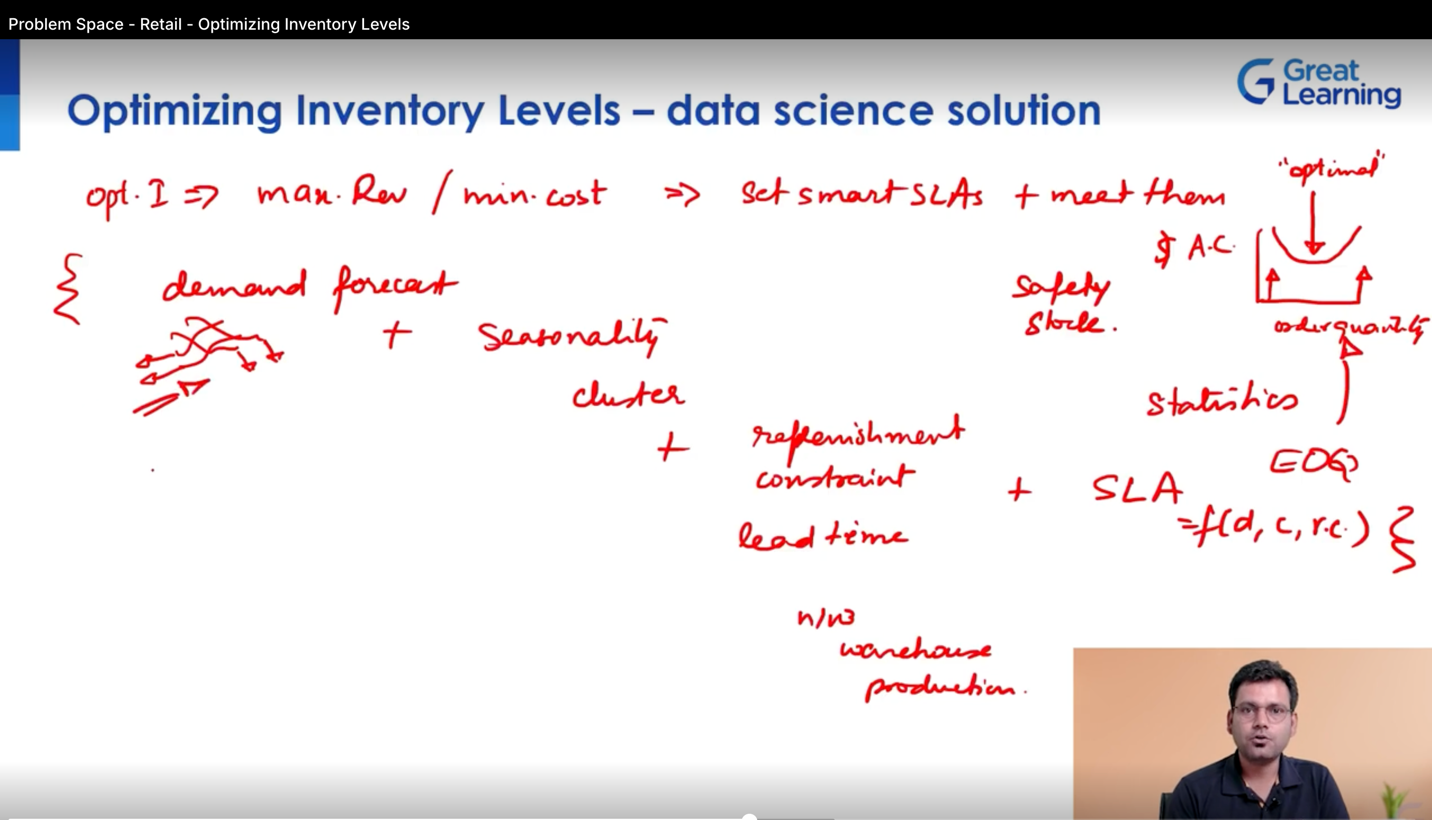 Problem Space - Retail - Optimizing Inventory Levels
Great
Learning
Optimizing Inventory Levels – data science solution
opt. I => max. Rev / min. cost => Set smart SLAs + meet them
"optimal"
$ A.C.
order quantity
demand forecast
+ Seasonality
cluster
Safety
Stock.
statistics
EOQ
+ replenishment
constraint
lead time
+ SLA
=f(d, c, r.c.)
warehouse
production.